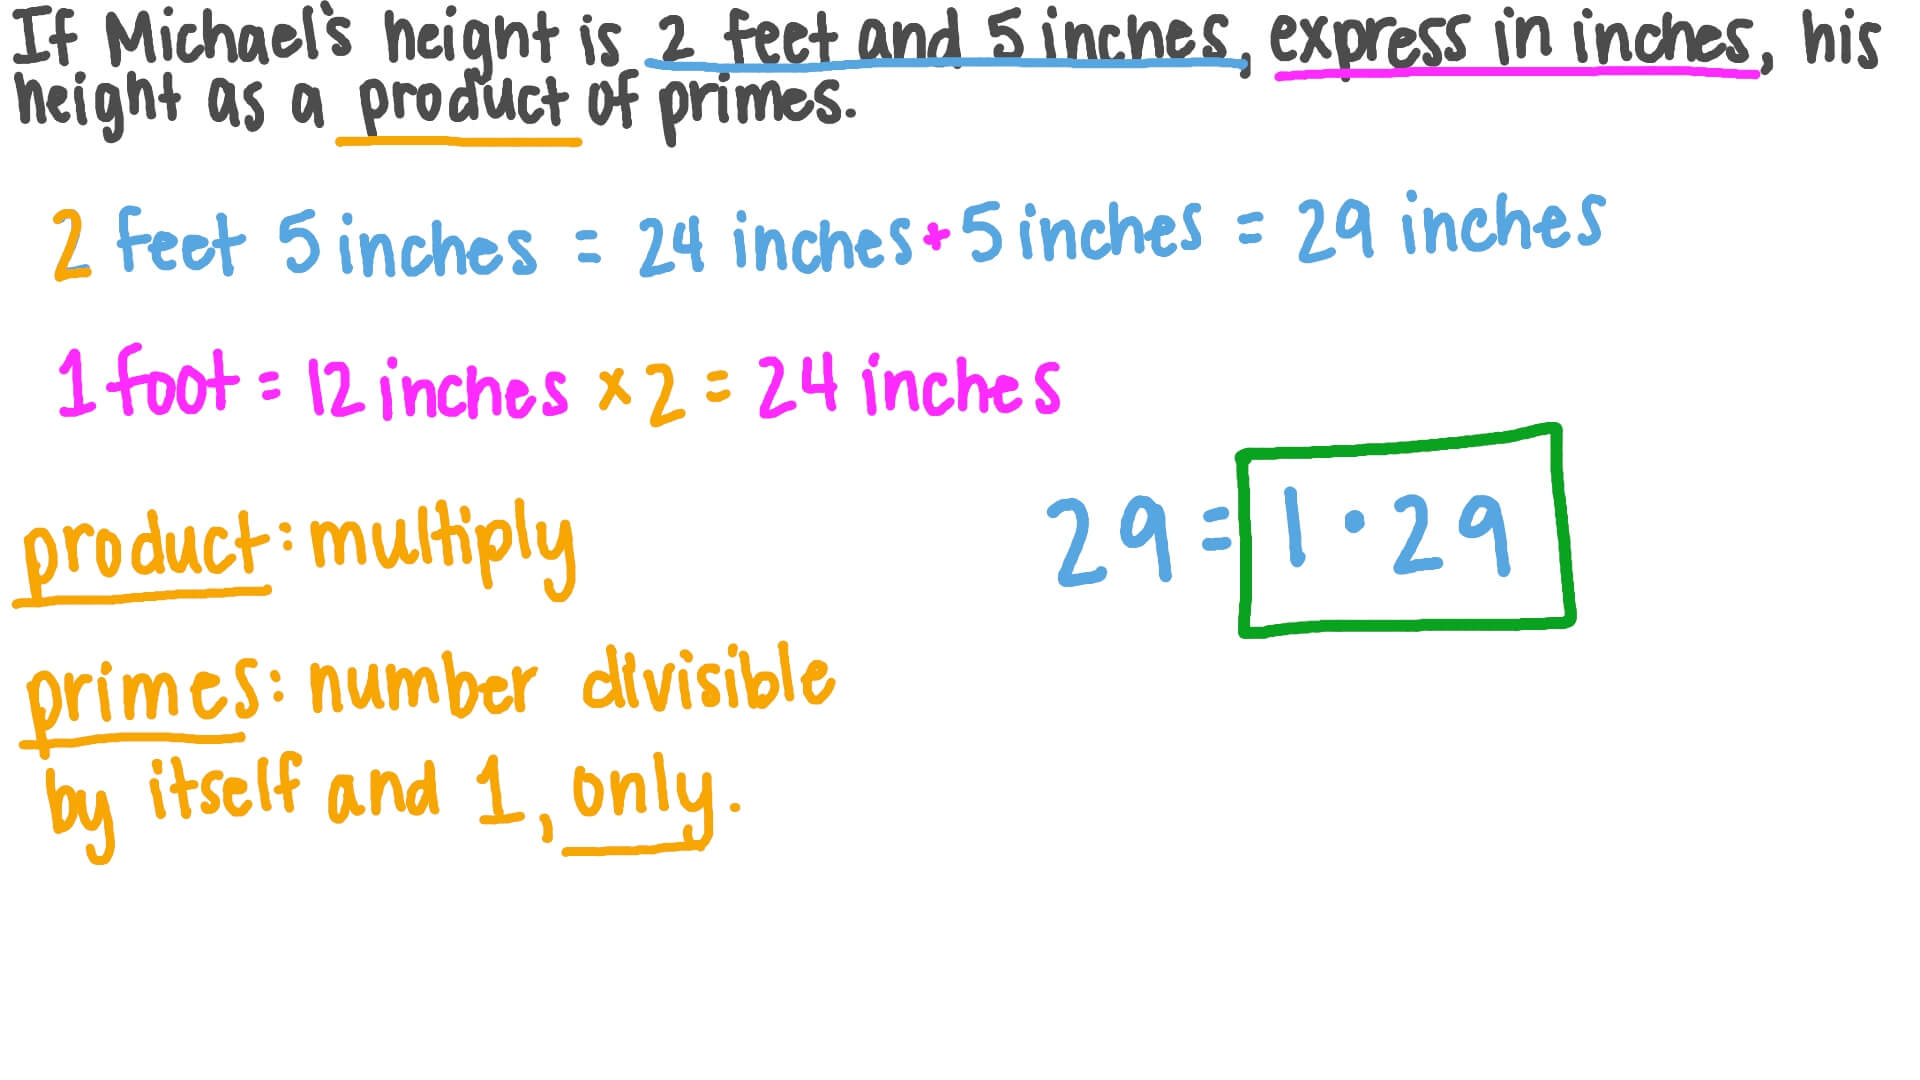 If Michael's height is 2 feet and 5 inches, express in inches, his
height as a product of primes.
2 feet 5 inches = 24 inches + 5 inches = 29 inches
1 foot = 12 inches x 2 = 24 inches
29 = 1 · 29
product: multiply
primes: number divisible
by itself and 1, only.